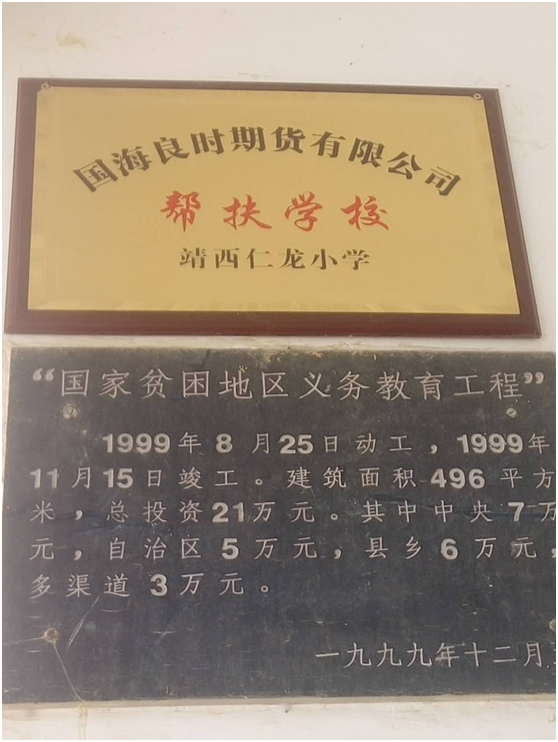 国海良时期货有限公司
帮扶学校
靖西仁龙小学
“国家贫困地区义务教育工程”
1999年8月25日动工，1999年
11月15日竣工。建筑面积496平方
米，总投资21万元。其中中央7万
元，自治区5万元，县乡6万元，
多渠道3万元。
一九九九年十二月